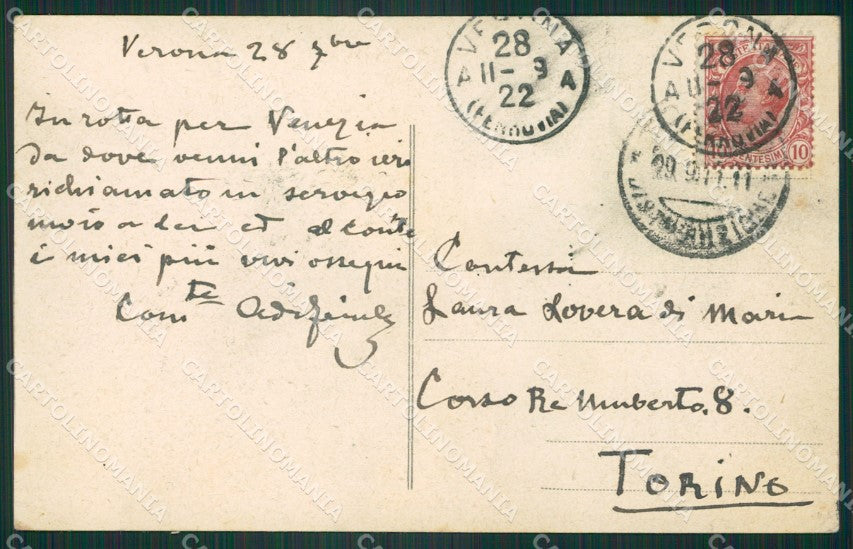 Verona 28 7bre
In rotta per Venezia
da dove venni l'altro ieri
richiamato in servizio
a lei ed al conte
i miei più vivi ossequi
Com.te
VERONA
28
A 11-9 A
22
(FERROVIA)
VERONA
28
A 11-9 A
22
(FERROVIA)
CENTESIMI 10
DISTRIBUZIONE
Contessa
Laura Lovera di Maria
Corso Re Umberto. 8.
TORINO
CARTOLINOMANIA